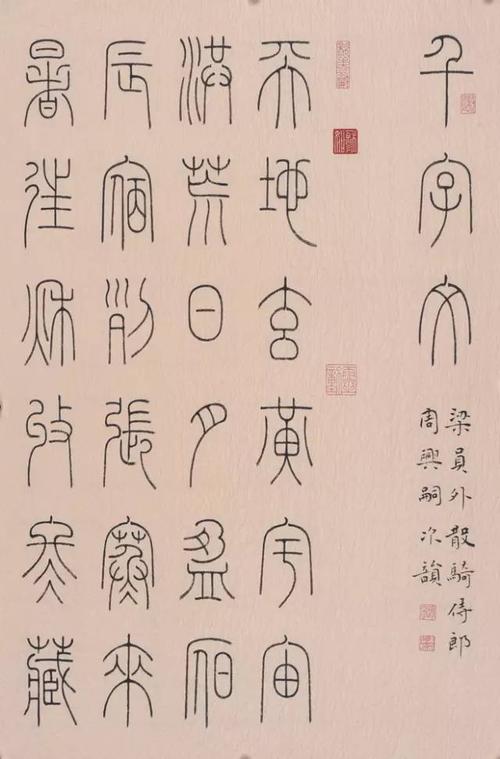 千字文
梁員外散騎侍郎
周興嗣次韻
天地玄黃宇宙
洪荒日月盈昃
辰宿列張寒來
暑往秋收冬藏